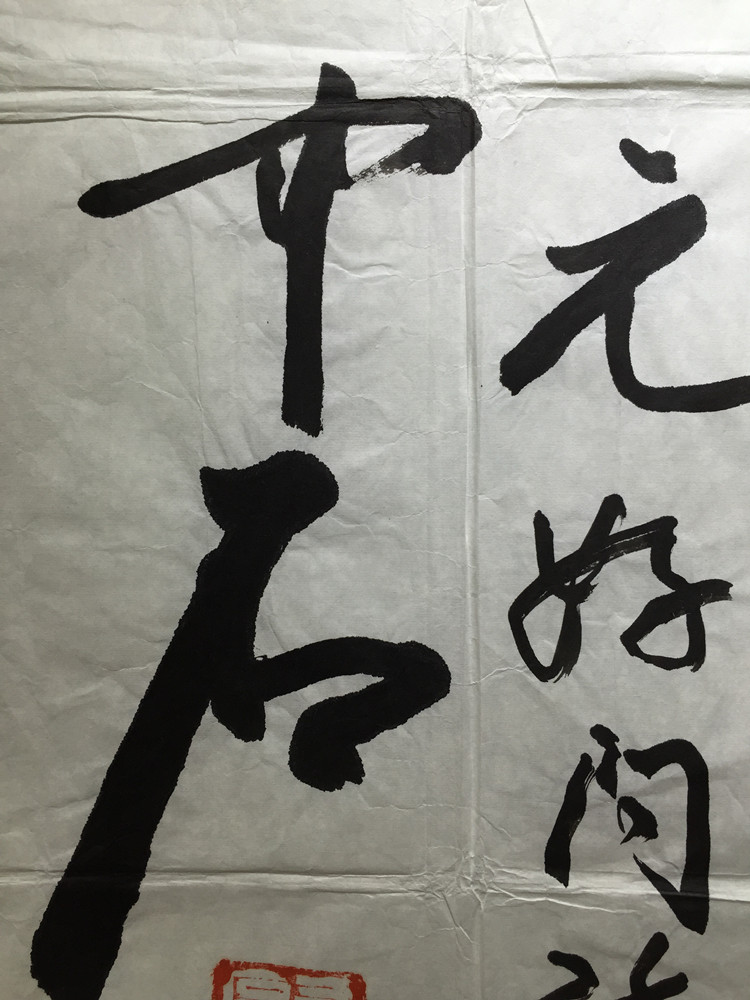 元好问
中石